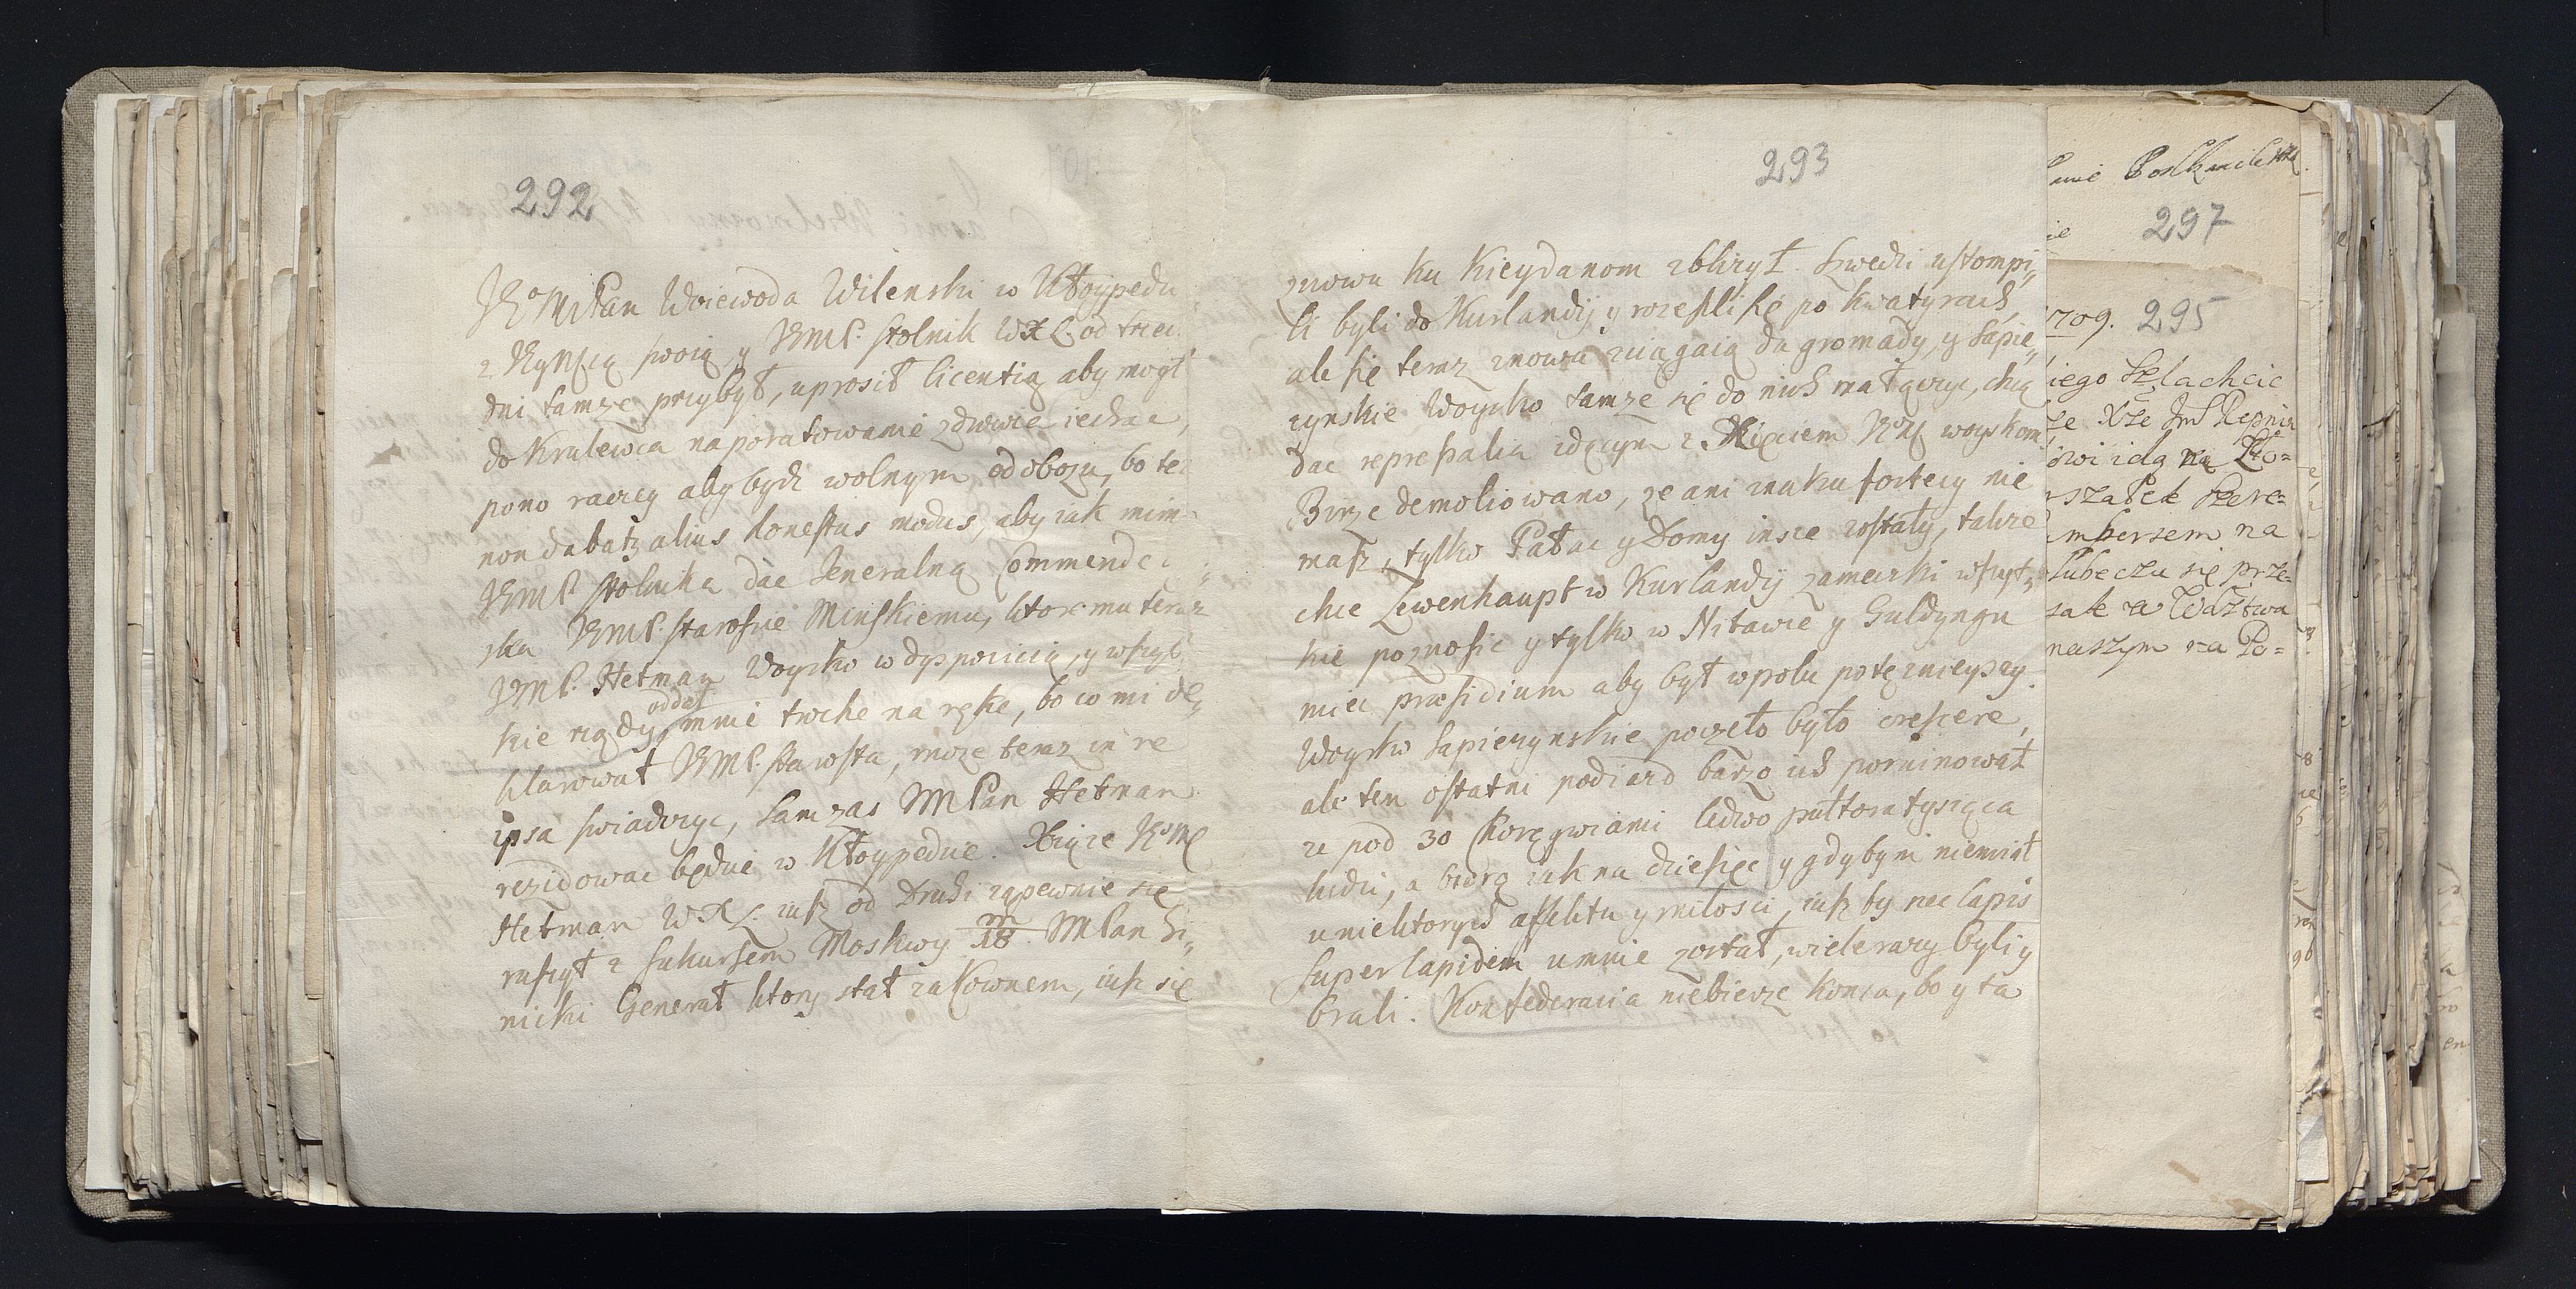 292
JEoMPan Woiewoda Wilenski w Kłoypedu
z Xyżną swoią, y JEMP. stolnik WXL. od trzech
dni tamze przybył, uprosił licentią aby mogł
do Krulewca na poratowanie zdrowie iechac,
pono raczey aby bydz wolnym od obozu, bo tez
non dabatz alius honestus modus, aby iak mim
JEMP stolnika dac Ieneralną Commendę
ska JEMP. staroscie Minskiemu, ktoremu teraz
JEMP. Hetman Woysko w dyspozicią, y wszyt
kie rządy oddał, mnie troche na rękę, bo co mi de,,
klarował JEMP. starosta, moze teraz in re
ipsa swiadczyc, sam zas JMPan Hetman
rezidowac będzie w Kłoypedzie. Xiąze JEoMP
Hetman WXL. iusz od Drui zapewnie się
ruszył z sukursem Moskwy m/18. JMPan Si,,
nicki Generał ktory stał za Kownem, iusz się
293
znowu ku Kieydanom zblizył. Szwedzi ustompi,,
li byli do Kurlandij y rozeszli się po kwatyrach,
ale się teraz znowu sciągaią do gromady, y Sapie,,
zynskie Woysko tamze się do nich ma łączyc, chcą
dac represalia idącym z Xiązciem JEoM woyskom
Birze demoliowano, ze ani znaku fortecy nie
masz, tylko Pałac y Domy insze zostały, takze
chce Lewenhaupt w Kurlandij zameczki wszyt,,
kie poznosic y tylko w Mitawie y Guldyngu
miec præsidium aby był w polu potęznieyszy.
Woysko Sapiezynskie poczeło było crescere,
ale ten ostatni podiazd barzo ich poruinował
ze pod 30 Chorągwiami ledwo pułtora tysiąca
ludzi, a biorą iak na dziesięc y gdybym niemiał
u niektorych affektu y miłosci, iusz by nec lapis
super lapidem u mnie został, wiele razy byli y
brali. Konfederacia niebierze konca, bo y ta
297
1709. 295
iego Szlachcic
ze Xze Jmć Repnin
owi idą na Pło=
rszałek Szere=
mbersem na
Lubeczu się prze=
zak w Wdztwa
naszym na Po=